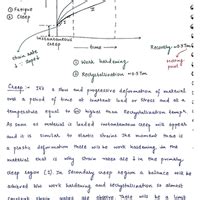 ① Fatigue
② Creep
Instantaneous
creep
time
Recovery → 0.3Tm
① Work hardening
② Recrystallisation → 0.5Tm
Creep :- It's a slow and progressive deformation of material
over a period of time at constant load or stress and at a
temperature equal to or higher than Recrystallisation temp.
As soon as material is loaded instantaneous creep will appear
and it is similar to elastic strain. The moment there is
a plastic deformation there will be work hardening in the
material that is why strain rate in the primary
creep region (I). In Secondary creep region a balance will be
achieved b/w work hardening and recrystallisation so almost
constant strain rates are observed. There will be a limit